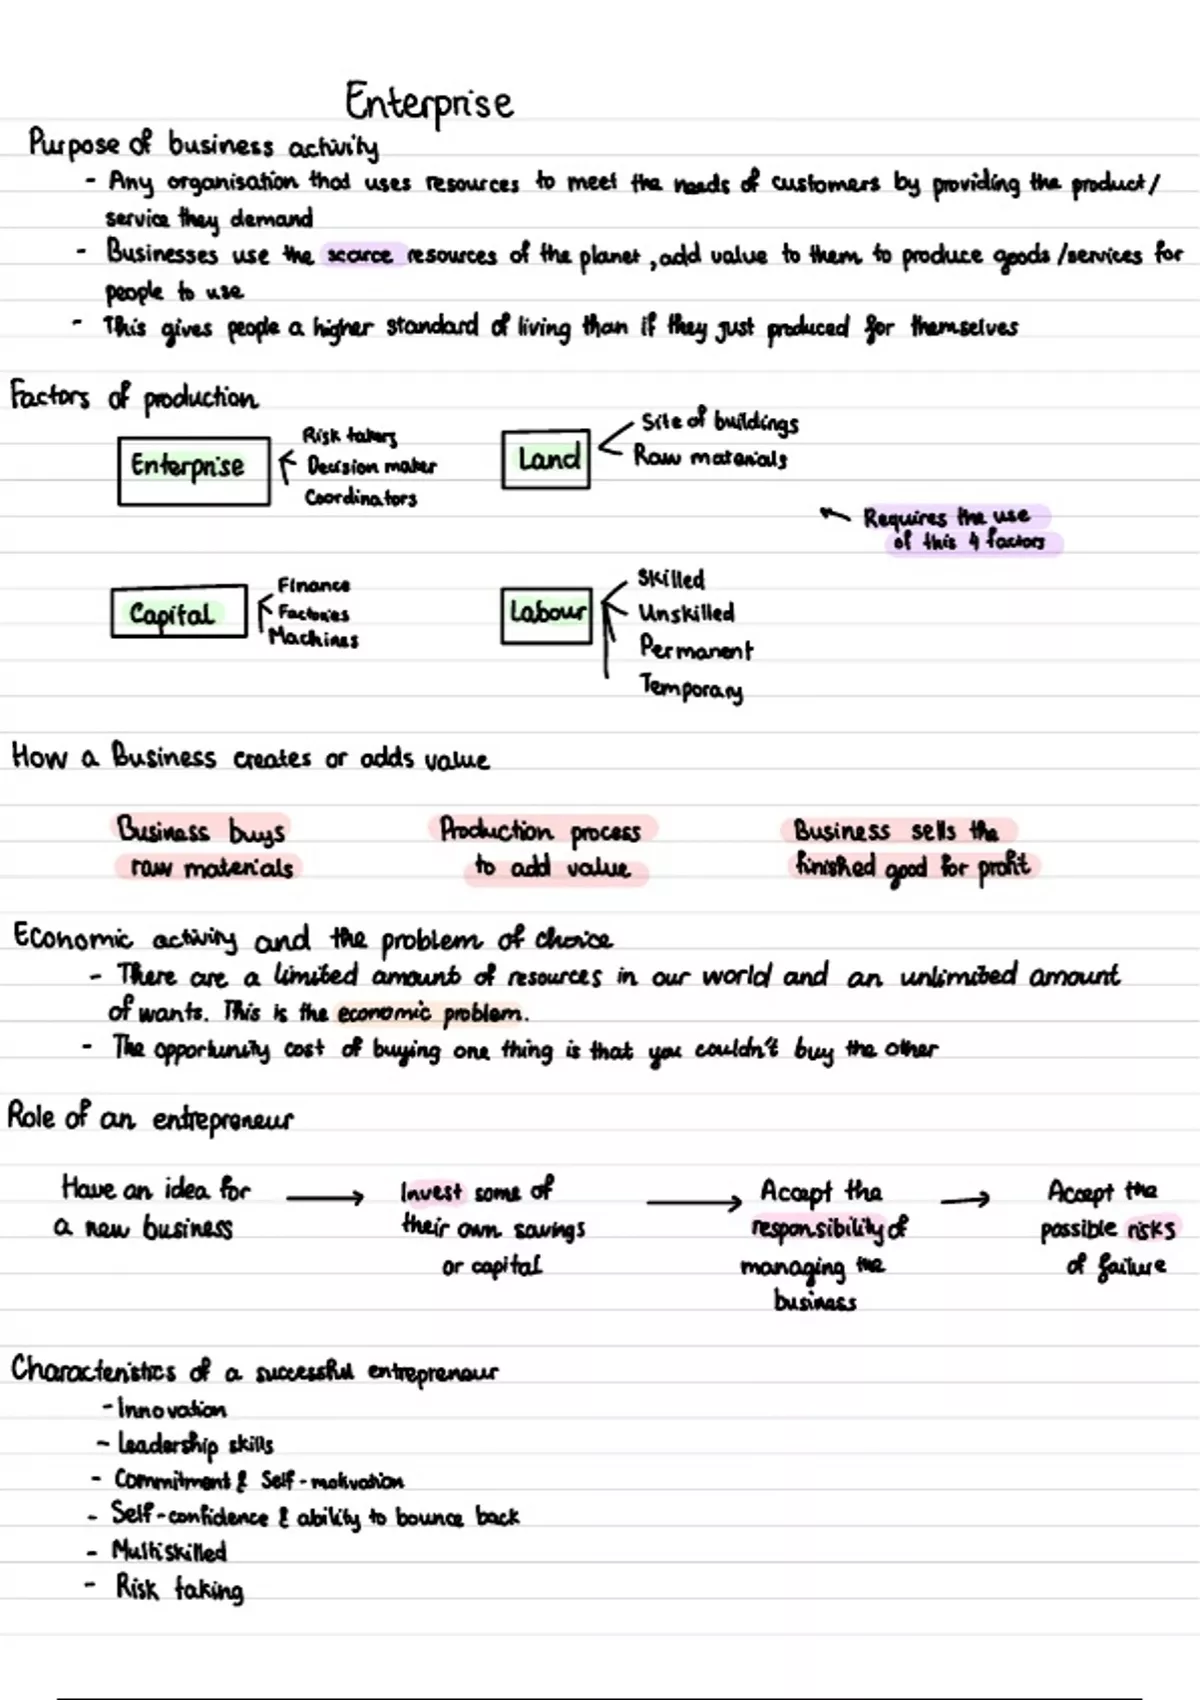 Enterprise
Purpose of business activity
- Any organisation that uses resources to meet the needs of customers by providing the product/
service they demand
- Businesses use the scarce resources of the planet, add value to them to produce goods/services for
people to use
- This gives people a higher standard of living than if they just produced for themselves
Factors of production
Enterprise
Risk takers
Decision maker
Coordinators
Land
Site of buildings
Raw materials
Requires the use
of this 4 factors
Capital
Finance
Factories
Machines
Labour
Skilled
Unskilled
Permanent
Temporary
How a Business creates or adds value
Business buys
raw materials
Production process
to add value
Business sells the
finished good for profit
Economic activity and the problem of choice
- There are a limited amount of resources in our world and an unlimited amount
of wants. This is the economic problem.
- The opportunity cost of buying one thing is that you couldn't buy the other
Role of an entrepreneur
Have an idea for
a new business
Invest some of
their own savings
or capital
Accept the
responsibility of
managing the
business
Accept the
possible risks
of failure
Characteristics of a successful entrepreneur
- Innovation
- Leadership skills
- Commitment & Self-motivation
- Self-confidence & ability to bounce back
- Multiskilled
- Risk taking